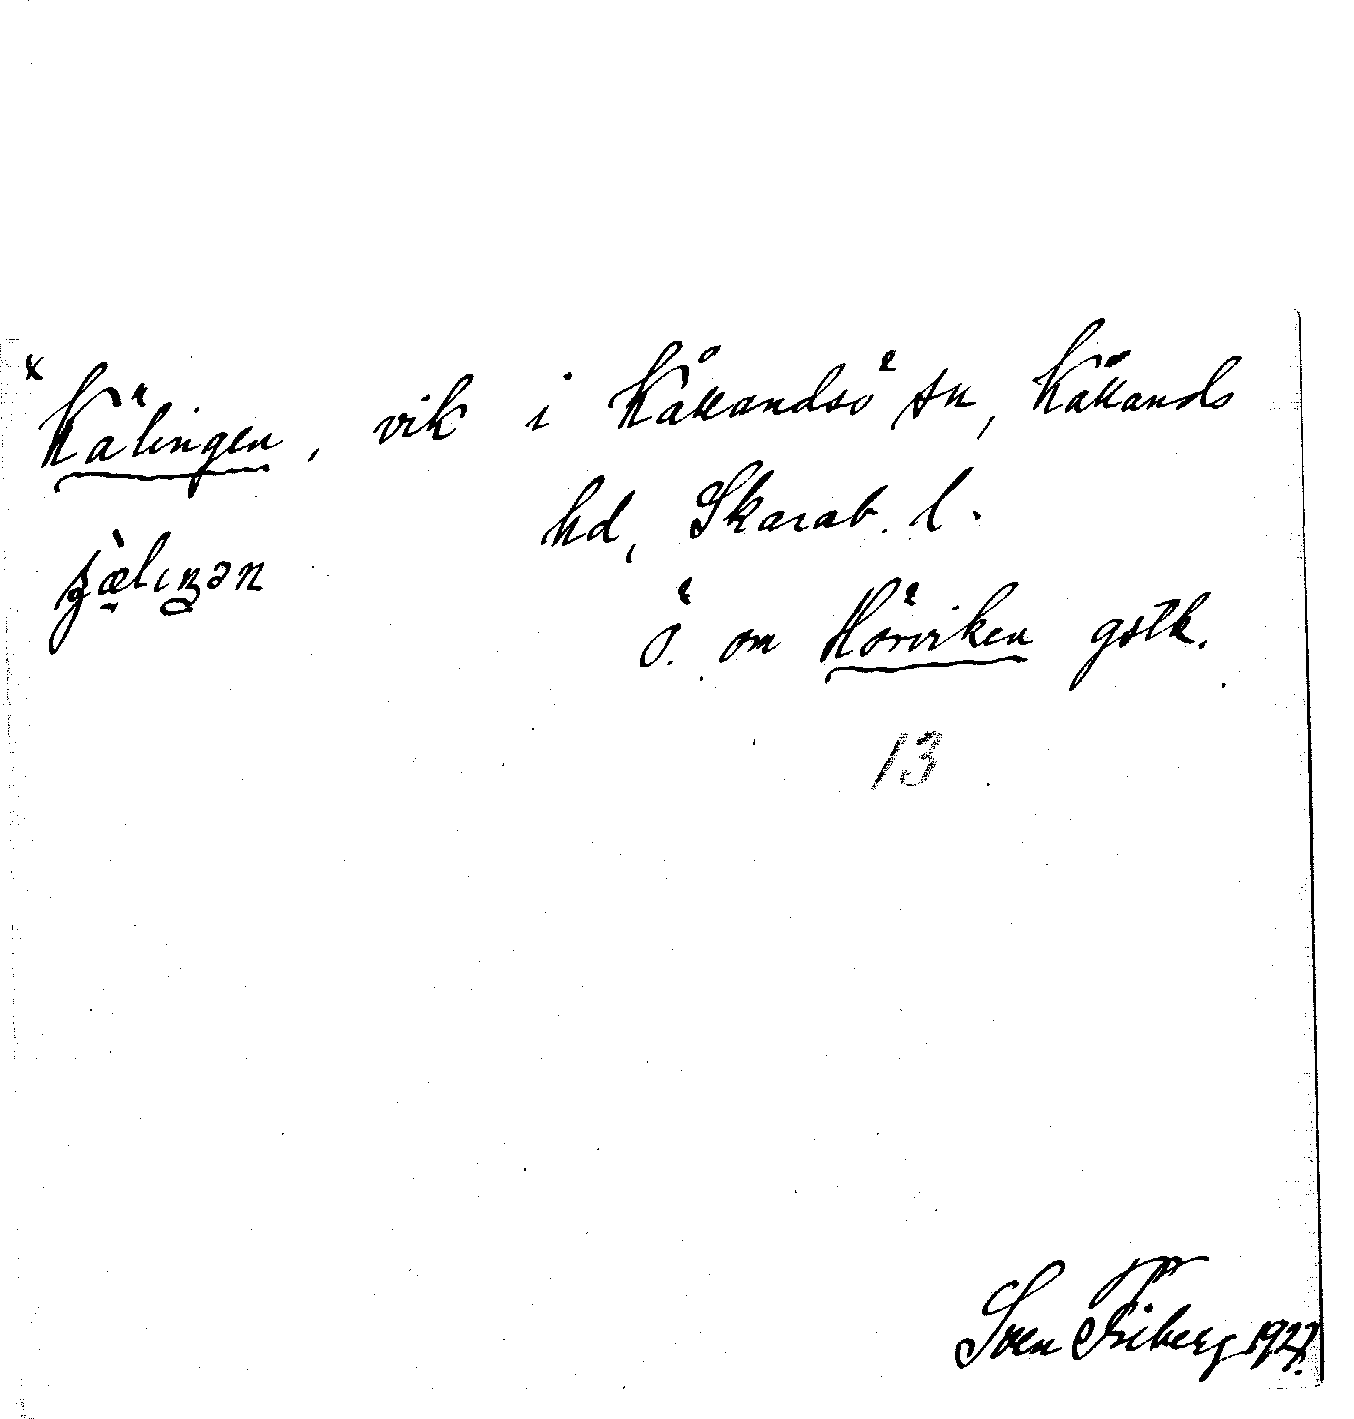 x Kälingen, vik i Kållandsö sn, Kållands
hd, Skarab. l.
Ö. om Hörviken gstk.
13
Sven Friberg 1927.